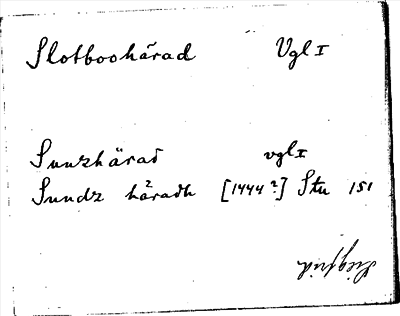 Slotboohärad Vgl I
Sunzhärad vgl I
Sundz häradh [1444?] Stu 151
Siegfrid